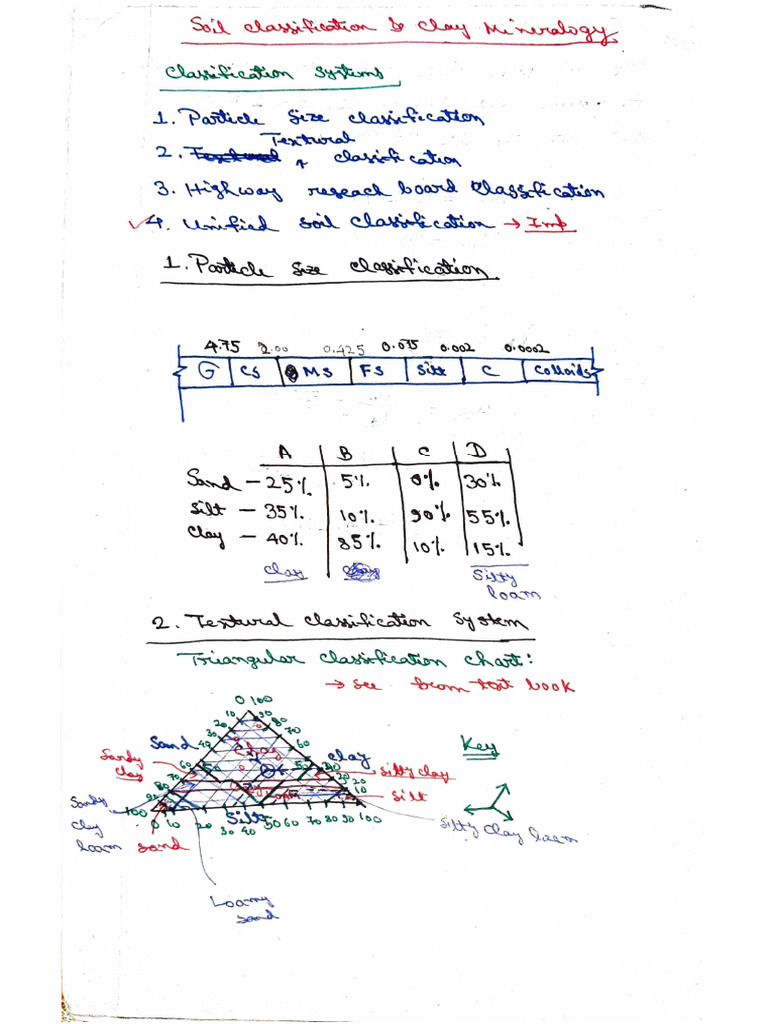 Soil classification & Clay Mineralogy
Classification Systems
1. Particle Size classification
2. Textural classification
3. Highway reseach board Classification
4. Unified soil classification → Imp
1. Particle size classification
4.75 2.00 0.425 0.075 0.002 0.0002
G CS MS FS Silt C Colloids
A B C D
Sand - 25% 5% 0% 30%
Silt - 35% 10% 90% 55%
Clay - 40% 85% 10% 15%
Clay Silty
loam
2. Textural classification System
Triangular classification chart:
→ see from text book
0 100
10 90
20 80
30 70
Sand 40 Clay 60 Clay Key
Sandy
clay 60 50 Silty clay
70 20
80 10 Silt
Sandy 100
clay 0 10 20 30 40 Silt 50 60 70 80 90 100 Silty clay loam
loam sand
Loamy
sand